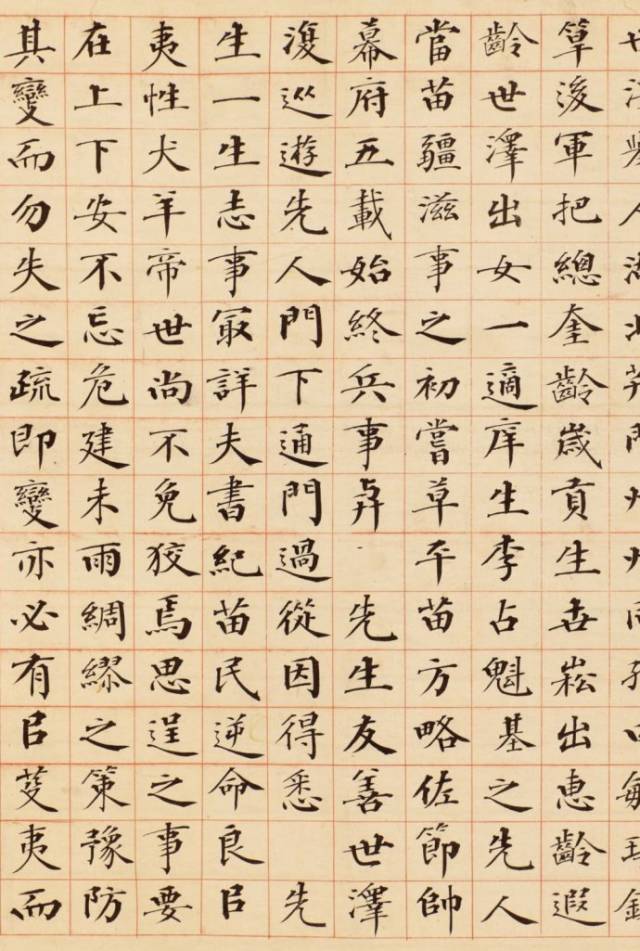 筸後軍把總奎齡歲貢生世崧出惠齡遐
齡世澤出女一適庠生李占魁基之先人
當苗疆滋事之初嘗草平苗方略佐節帥
幕府五載始終兵事與 先生友善世澤
復從遊先人門下通門過從因得悉 先
生一生志事最詳夫書紀苗民逆命良㠯
夷性犬羊帝世尚不免狡焉思逞之事要
在上下安不忘危建未雨綢繆之策豫防
其變而勿失之疏即變亦必有㠯芟夷而